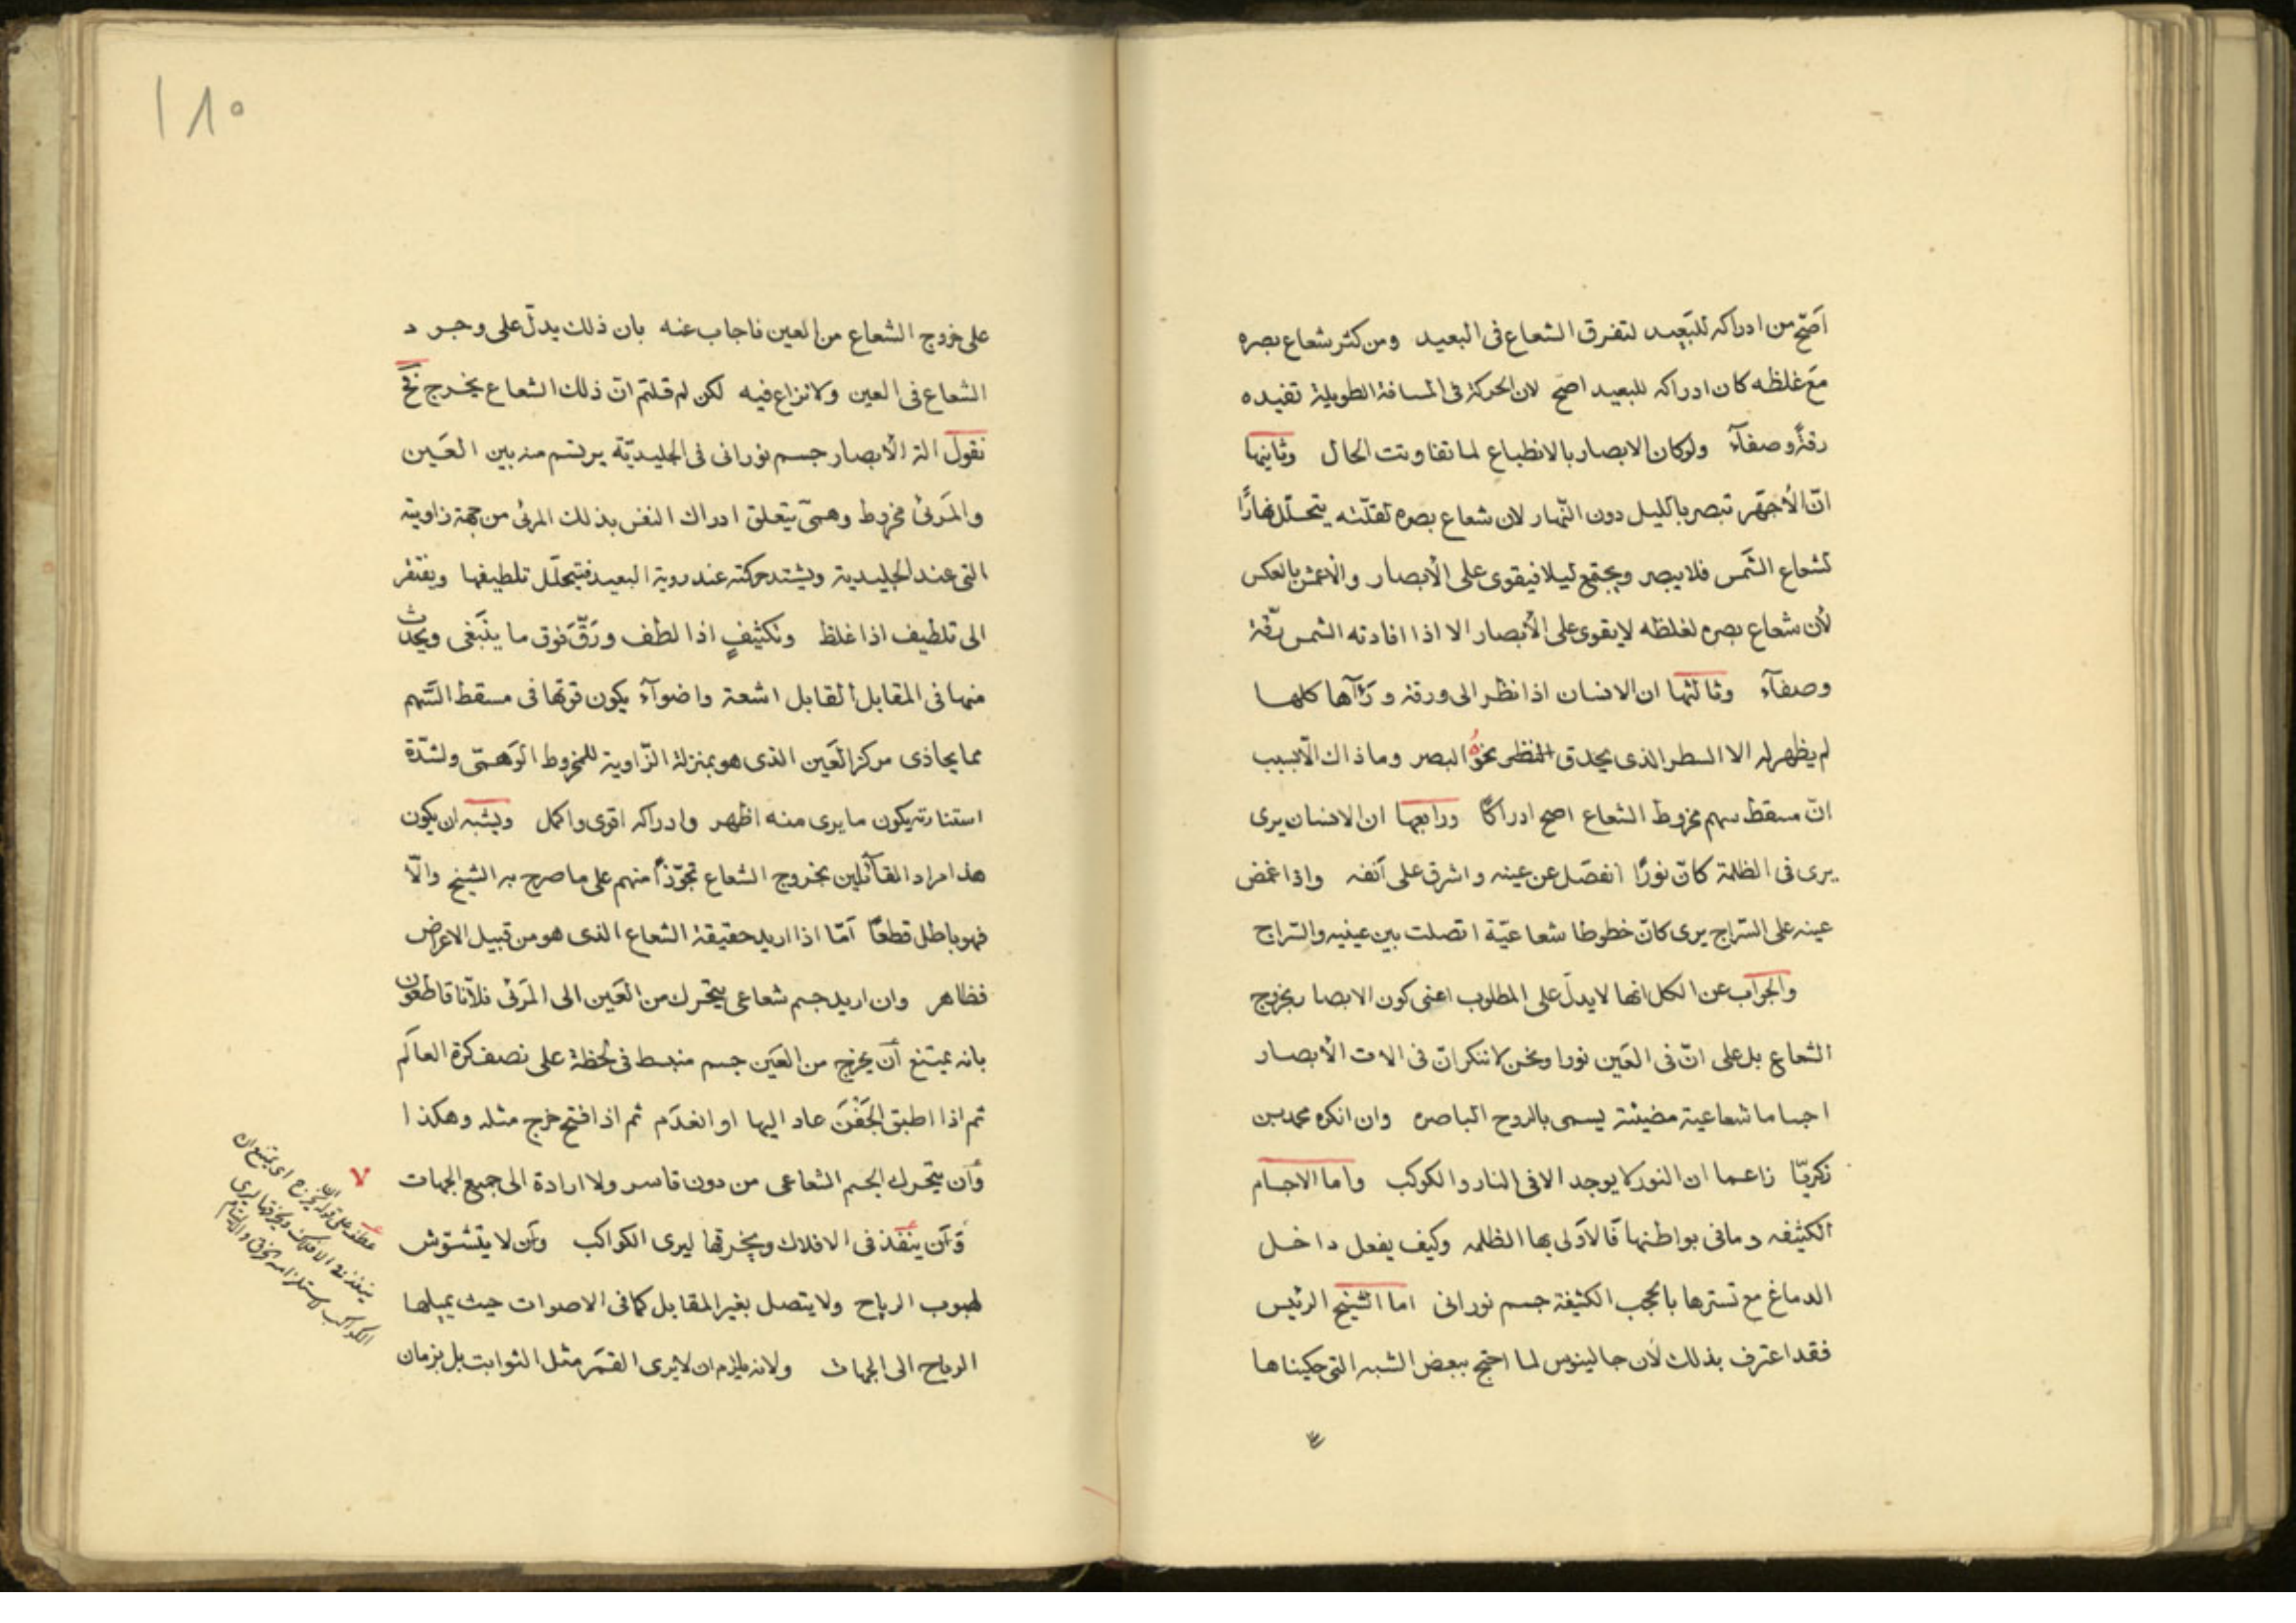 اَصَحّ من ادراكه للبَعِيد لتفرق الشعاع فى البعيد ومن كثر شعاع بصره
مَعَ غلظه كان ادراكه للبعيد اصح لان الحركة فى المسافة الطويلة تفيده
رقةً وصفآءً ولو كان الابصار بالانطباع لما تفاوتت الحال وثانيها
انّ الأجهَر تبصر بالليل دون النّهار لان شعاع بصره لقلّته يتحلّل نهارًا
لشعاع الشَّمس فلا يبصر ويجتمع ليلا فيقوى على الأبصار والأعمش بالعكس
لأن شعاع بصره لغلظه لا يقوى على الأبصار الا اذا افادته الشمس رقّة
وصفآءً وثالثها ان الانسان اذا نظر الى ورقة ورَآها كلها
لم يظهر له الا السطر الذى يحدق النظر نحوهُ البصر وما ذاك الّا بسبب
انّ مسقط سهم مخروط الشعاع اصح ادراكًا ورابعها ان الانسان يرى
يرى فى الظلمة كانّ نورًا انفصَل عن عينه واشرق على اَنفه واذا غمض
عينه على السّراج يرى كانّ خطوطا شعاعيّة اتصلت بين عينيه والسّراج
والجوَاب عن الكل انها لا يدلّ على المطلوب اعنى كون الابصار بخروج
الشعاع بل على انّ فى العَين نورا ونحن لا ننكر انّ فى الات الأبصار
اجساما شعاعية مضيئة يسمى بالروح الباصره وان انكره محمد بن
زكريّا زاعما ان النور لا يوجد الا فى النار والكوكب واما الاجسام
الكثيفه وما فى بواطنها فَالاَولى بها الظلمه وكيف يفعل داخل
الدماغ مع تسترها بالحجب الكثيفة جسم نورانى اما الشيخ الرئيس
فقد اعترف بذلك لأن جالينوس لما احتج ببعض الشبه التى حكيناها
١٨٥
على خروج الشعاع من العين فاجاب عنه بان ذلك يدلّ على وجود
الشعاع فى العين ولا نزاع فيه لكن لم قلتم انّ ذلك الشعاع يخرج نَحْ
نقول الة الأبصار جسم نورانى فى الجليديّة يرتسم منه بين العَين
والمَرئى مخروط وهمىّ يتعلق ادراك النفس بذلك المرئى من جهة زاويته
التى عند الجليدية ويشتد حركته عند روية البعيد فيتحلّل تلطيفها ويفتقر
الى تلطيف اذا غلظ وتكثيفٍ اذا لطف ورَقَّ فوق ما ينبَغى ويحدث
منها فى المقابل القابل اشعة واضوآء يكون قوتها فى مسقط السَّهم
مما يحاذى مركز العَين الذى هو بمنزلة الزّاوية للمخروط الوَهمىّ ولشدّة
استنارته يكون ما يرى منه اظهر وادراكه اقوى واكمل ويشبه ان يكون
هذا مراد القآئلين بخروج الشعاع تجوّزًا منهم على ما صرح به الشيخ والّا
فهو باطل قطعًا اَمّا اذا اريد حقيقة الشعاع الذى هو من قبيل الاعراض
فظاهر وان اريد جسم شعاعى يتحرك من العَين الى المَرئى فلاَنّا قاطعون
بانه يمتنع أن يخرج من العَين جسم منبسط فى لحظة على نصف كرة العالَم
ثم اذا اطبق الجَفنَ عاد اليها او انعدَم ثم اذا فتح خرج مثله وهكذا
وأن يتحرك الجسم الشعاعى من دون قاسر ولا ارادة الى جميع الجهات
وَأن ينفَذ فى الافلاك ويخرقها ليرى الكواكب وأن لا يتشوّش
لهبوب الرياح ولا يتصل بغير المقابل كما فى الاصوات حيث يميلها
الرياح الى الجهاث ولانه يلزم ان لا يرى القمَر مثل الثوابت بل بزمان
٧
عطف على قوله ان يخرج اى يمتنع ان
ينفذ فى الافلاك ويخرقها ليرى
الكواكب لاستلزامه الخرق والالتيام